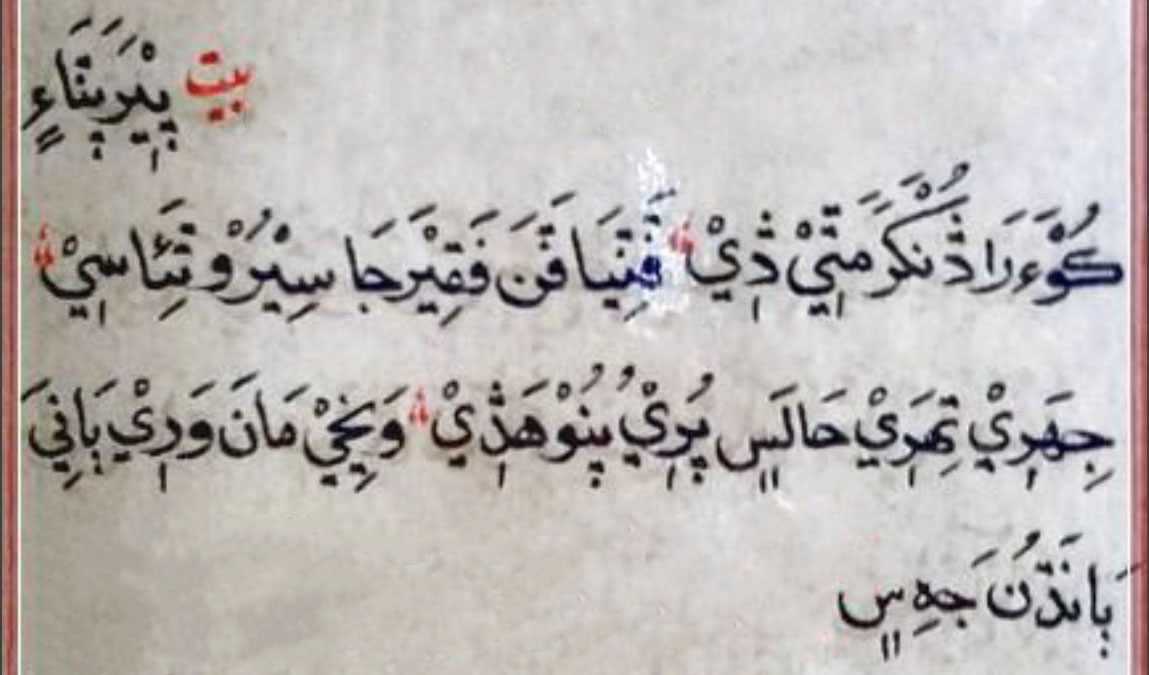 بيت پِيْرَپَتَاءٍ
ڪُوْءَ رَاڌَ نَکَرَ مَتِيْ ڌِيْ فَتِيَا فَنَ فَقِيْرَ جَا سِيْرُوْ تَئَا سِيْ
جِهَرِيْ تِهَرِيْ حَالَسٍ پُرِيْ پُنُوْ هَڏِيْ وَڃِيْ مَانَ وَرِيْ ٻَانِيَ
ٻَانَڌُنَ جَهِ سٍ